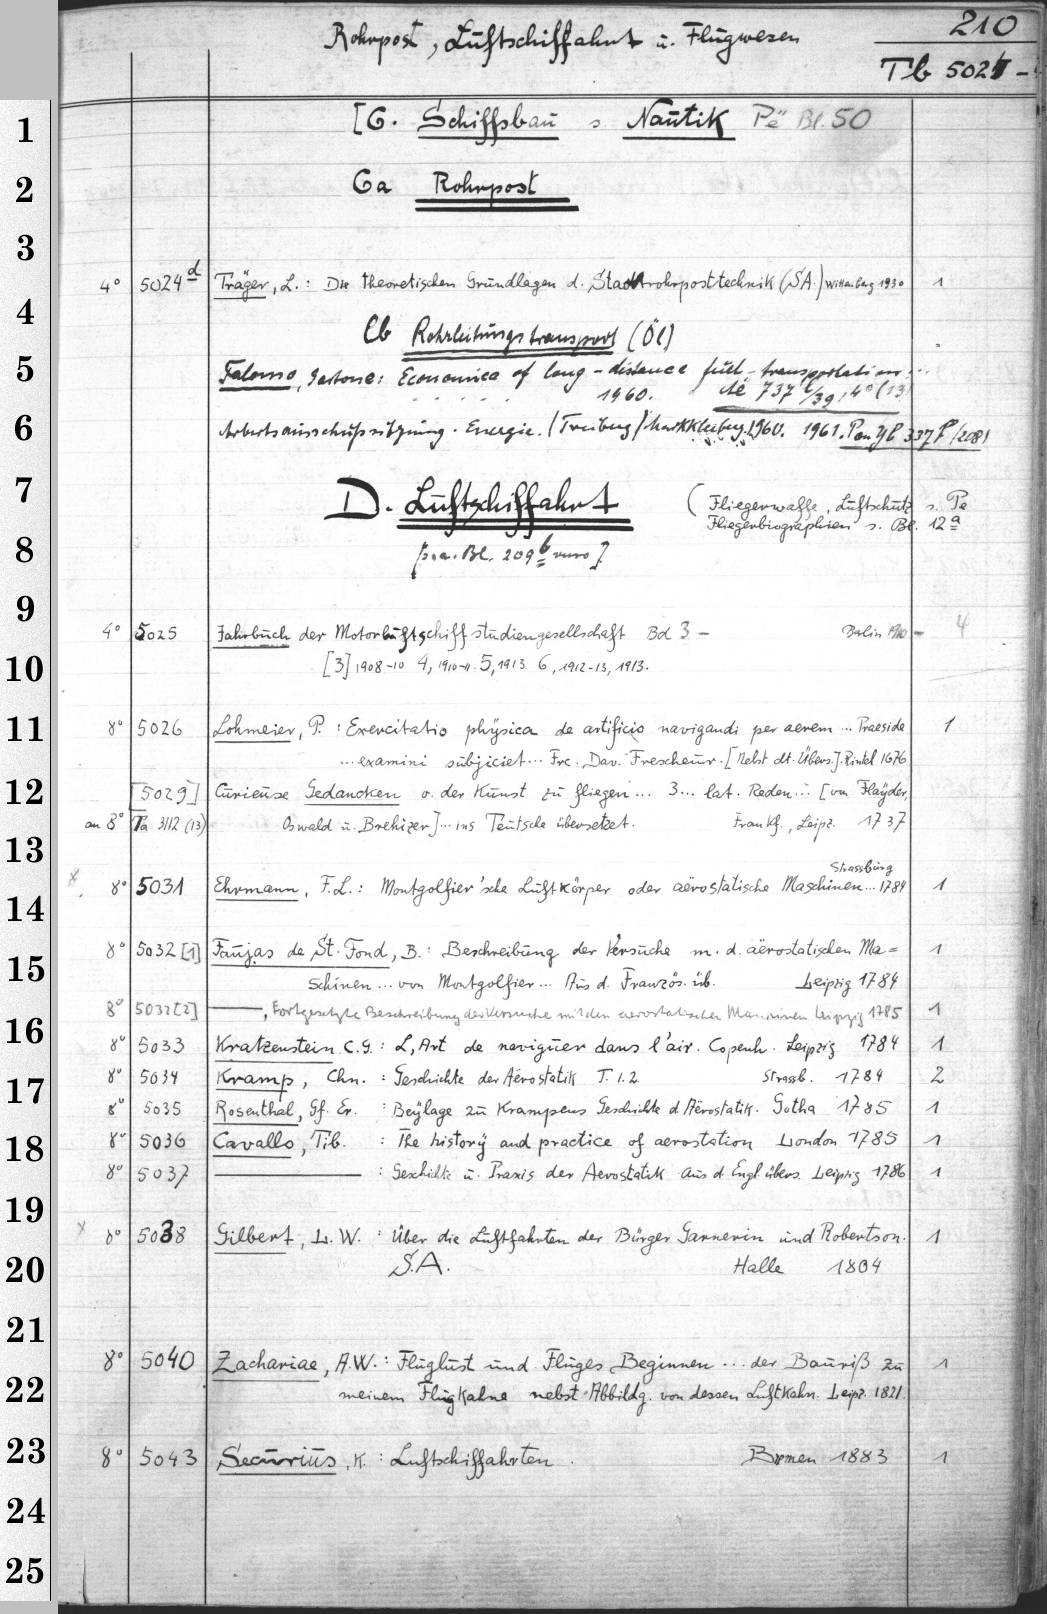 210
Rohrpost, Luftschiffahrt u. Flugwesen
Tb 5024 -
1
[C. Schiffsbau s. Nautik Pë Bl. 50
2
Ca Rohrpost
3
4° 5024 d Träger, L.: Die theoretischen Grundlagen d. Stadtrohrposttechnik (S.A.) Wittenberg 1930 1
4
Cb Rohrleitungstransport (Öl)
5
Falomo, Gastone: Economica of long-distance fuel-transportation...
1960. 737 /39, 4° (13)
6
Arbeitsausschußsitzung. Energie. (Freiberg) Markkleeberg. 1960. 1961. 337 /208)
7
D. Luftschiffahrt
(Fliegerwaffe, Luftschutz s. Pe
Fliegerbiographien s. Bl. 12 a
8
[s. a. Bl. 209 b verso]
9
4° 5025 Jahrbuch der Motorluftschiffstudiengesellschaft Bd 3 - Berlin 1910 - 4
10
[3] 1908-10 4, 1910-11. 5, 1913 6, 1912-13, 1913.
11
8° 5026 Lohmeier, P.: Exercitatio physica de artificio navigandi per aerem ... Praeside 1
... examini subjiciet ... Frc. Dav. Frescheur. [Nebst dt. Übers.]. Rintel 1676
12
[5029] Curieuse Gedancken v. der Kunst zu fliegen ... 3 ... lat. Reden ... [von Flayder,
an 8° Ta 3112 (13) Oswald u. Brehizer] ... ins Teutsche übersetzet. Frankf., Leipz. 1737
13
Strassburg
x 8° 5031 Ehrmann, F.L.: Montgolfier'sche Luftkörper oder aërostatische Maschinen... 1784 1
14
8° 5032 [1] Faujas de St. Fond, B.: Beschreibung der Versuche m. d. aërostatischen Ma= 1
15
schinen ... von Montgolfier ... Aus d. Französ. üb. Leipzig 1784
8° 5032 [2] ———, Fortgesetzte Beschreibung der Versuche mit den aerostatischen Maschinen Leipzig 1785 1
16
8° 5033 Kratzenstein C.G.: L'Art de naviguer dans l'air. Copenh. Leipzig 1784 1
17
8° 5034 Kramp, Chn.: Geschichte der Aërostatik T. 1.2. Strassb. 1784 2
8° 5035 Rosenthal, Gf. Er.: Beylage zu Krampens Geschichte d Aërostatik. Gotha 1785 1
18
8° 5036 Cavallo, Tib.: The history and practice of aerostation London 1785 1
8° 5037 ———: Geschichte u. Praxis der Aerostatik Aus d Engl. übers. Leipzig 1786 1
19
x 8° 5038 Gilbert, L. W.: Über die Luftfahrten der Bürger Garnerin und Robertson. 1
20
S.A. Halle 1804
21
8° 5040 Zachariae, A.W.: Fluglust und Fluges Beginnen ... der Bauriß zu 1
22
meinem Flugkahne nebst Abbildg. von dessen Luftkahn. Leipz. 1821.
23
8° 5043 Securius, K.: Luftschiffahrten. Bremen 1883 1
24
25